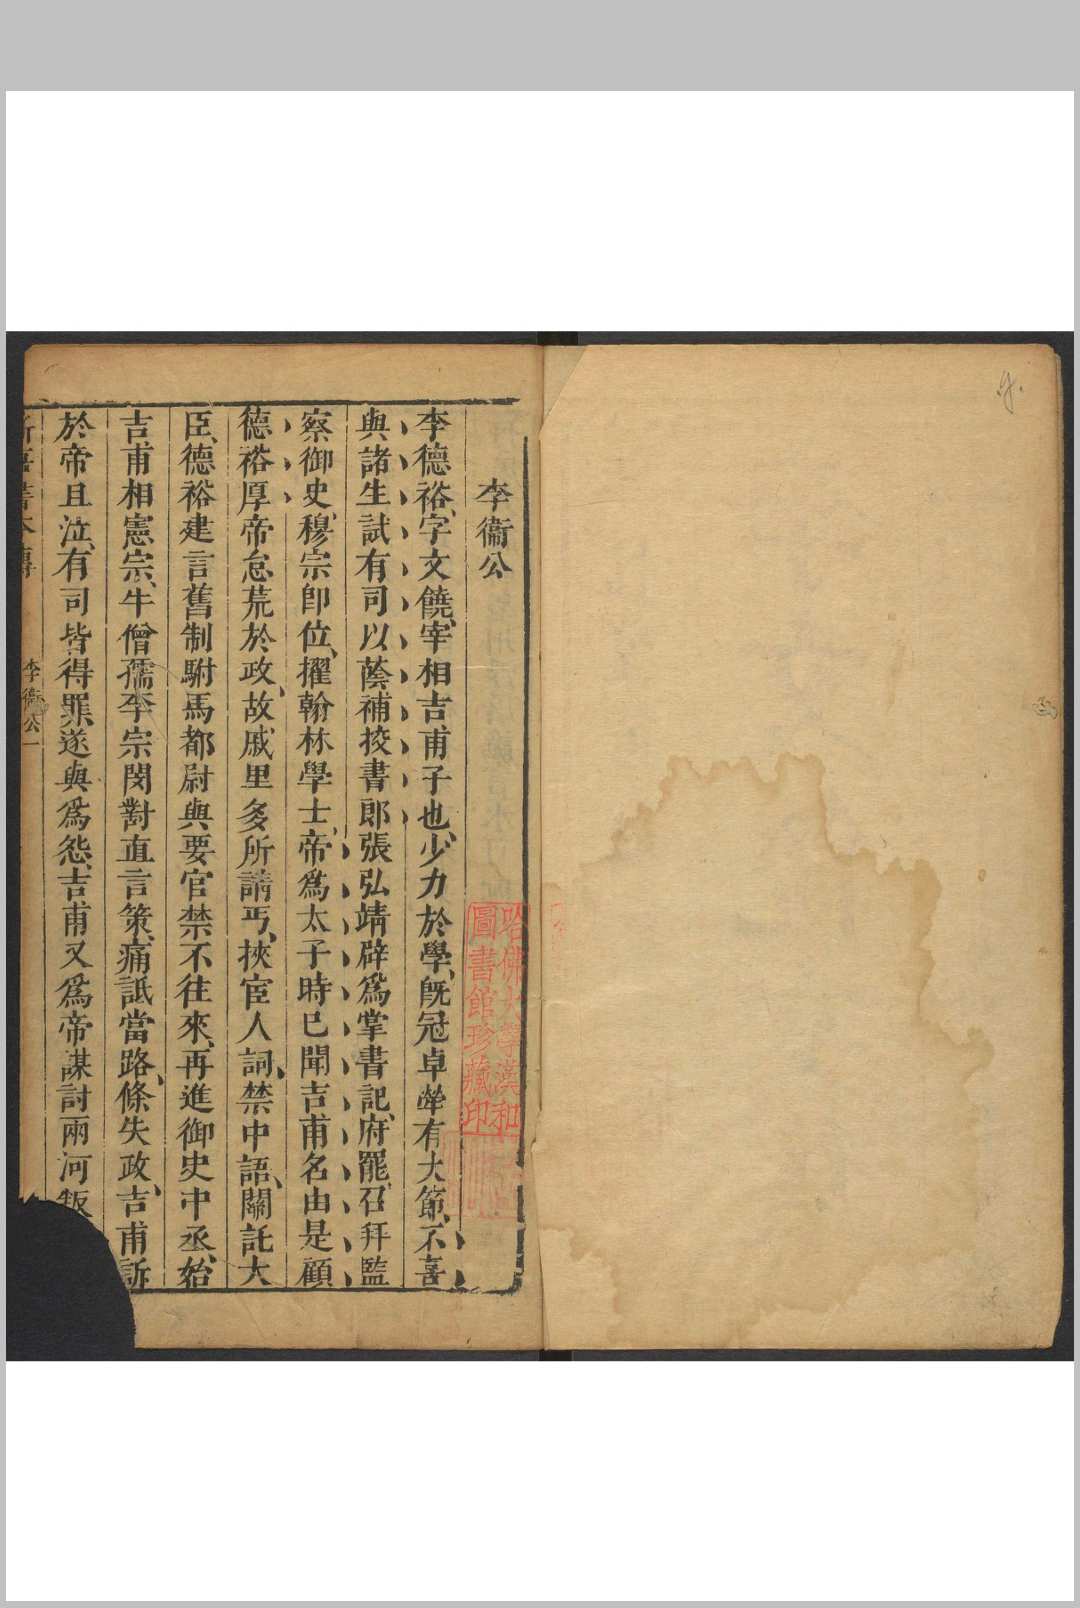 李衞公
李德裕、字文饒、宰相吉甫子也、少力於學、旣冠卓犖有大節、不喜
與諸生試有司以蔭補挍書郎張弘靖辟爲掌書記、府罷、召拜監
察御史、穆宗卽位、擢翰林學士、帝爲太子時已聞吉甫名由是顧
德裕厚帝怠荒於政、故戚里多所請丐、挾宦人詞、禁中語、關託大
臣、德裕建言舊制駙馬都尉與要官禁不往來、再進御史中丞、始
吉甫相憲宗、牛僧孺李宗閔對直言策、痛詆當路、條失政、吉甫訴
於帝且泣、有司皆得罪、遂與爲怨、吉甫又爲帝謀討兩河叛
本傳
李衞公
一
哈佛大學漢和
圖書館珍藏印